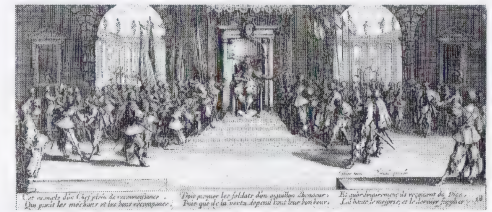 Cet exemple d'un Chef plein de reconnoissance,
Qui punit les méchans et les bons recompance,
Doit picquer les soldats d'un aiguillon d'honneur,
Puis que de la vertu, depend tout leur bonheur,
Et qu'ordinairement, ils reçoivent du Vice,
La honte, le mespris, et le dernier supplice.
18